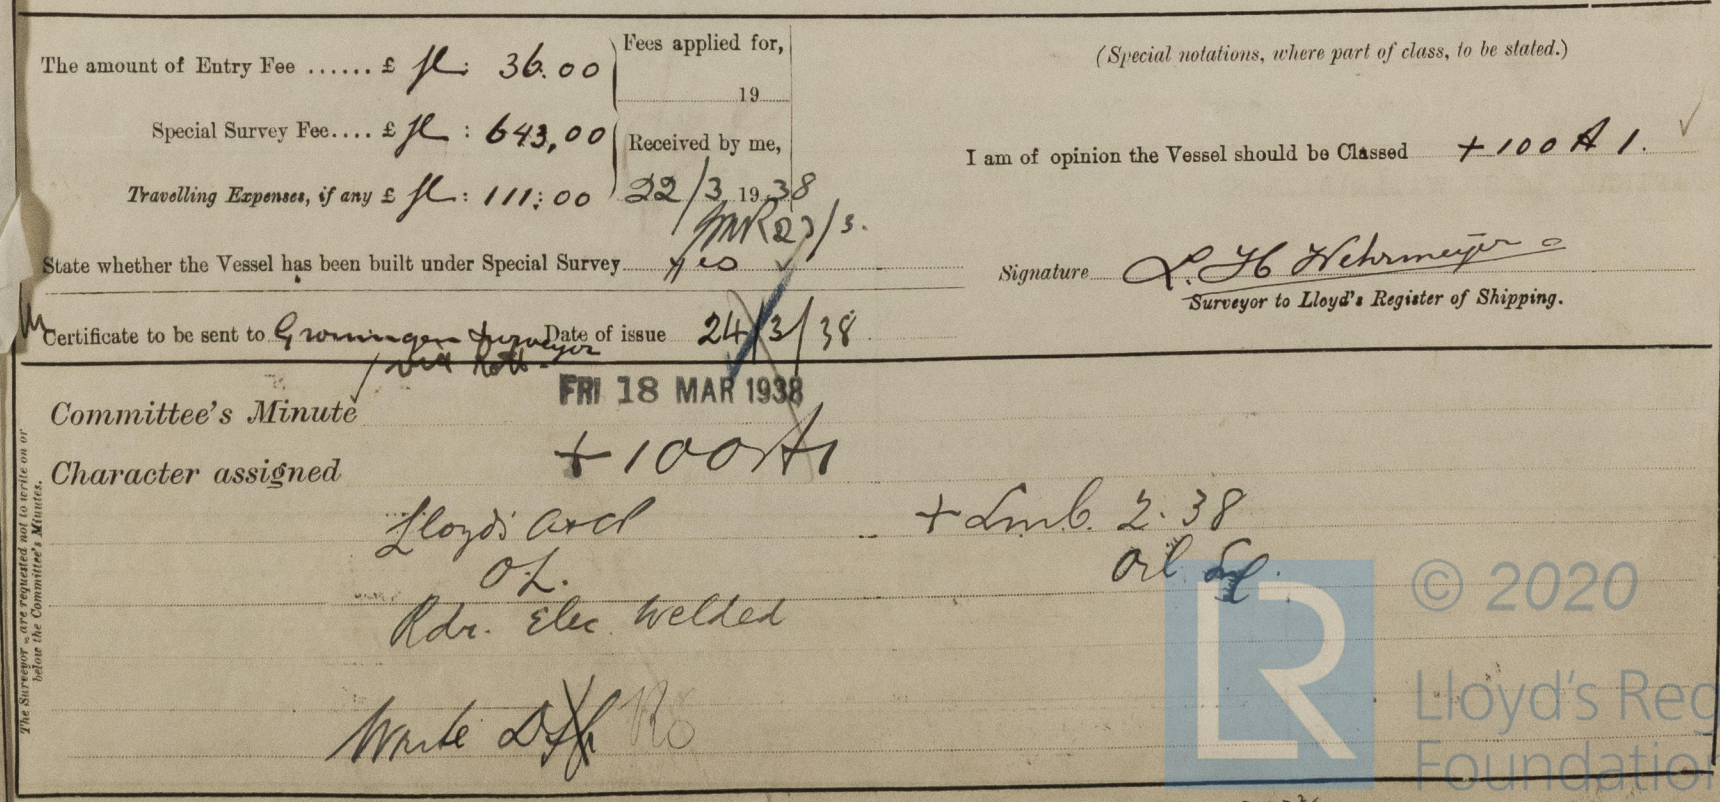 The amount of Entry Fee ...... £ fl: 36.00
Fees applied for,
19
Special Survey Fee.... £ fl : 643,00
Received by me,
Travelling Expenses, if any £ fl : 111:00
22/3 1938
23/3.
State whether the Vessel has been built under Special Survey yes
Certificate to be sent to Groningen Surveyor Date of issue 24/3/38
via Rott.
(Special notations, where part of class, to be stated.)
I am of opinion the Vessel should be Classed + 100 A 1.
Signature L. H. Wehrmeyer
Surveyor to Lloyd's Register of Shipping.
FRI 18 MAR 1938
Committee's Minute
Character assigned + 100A1
Lloyd's A&CP
O.L.
Rdr. Elec. Welded
+ Lmb. 2. 38
Oil
Write
Ro
The Surveyors are requested not to write on or
below the Committee's Minutes.
© 2020
LR
Lloyd's Reg
Foundation